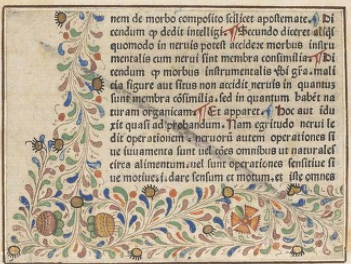 nem de morbo composito scilicet apostemate. Di
cendum qp dedit intelligi. Secundo diceret aliqs
quomodo in neruis potest accidere morbus instru
mentalis cum nerui sint membra consimilia. Di
cendum qp morbus instrumentalis vbi gra. mali
cia figure aut situs non accidit neruis in quantus
sunt membra cōsimilia. sed in quantum habēt na
turam organicam. Et apparet. Hoc aut idu
xit quasi ad probandum. Nam egritudo nerui le
dit operationem. neruorū autem operationes si
ue iuuamenta sunt vel cōes omnibus ut naturales
circa alimentum. uel sunt operationes sensitiue si
ue motiue. i. dare sensum et motum. et iste omnes